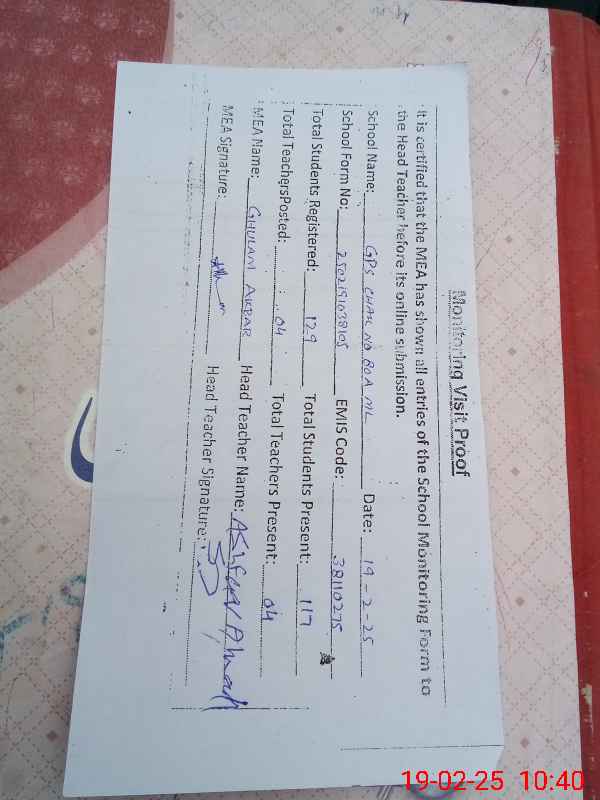 Monitoring Visit Proof
It is certified that the MEA has shown all entries of the School Monitoring Form to
the Head Teacher before its online submission.
School Name: GPS CHAK NO 80A ML Date: 19-2-25
School Form No: 2502191038105 EMIS Code: 38110275
Total Students Registered: 129 Total Students Present: 117
Total TeachersPosted: 04 Total Teachers Present: 04
MEA Name: GHULAM AKBAR Head Teacher Name: Ashfaq Ahmad
MEA Signature: Head Teacher Signature:
19-02-25 10:40